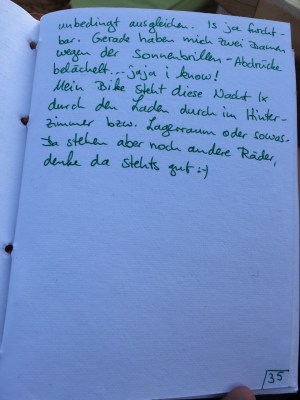 unbedingt ausgleichen. Is ja furcht-
bar. Gerade haben mich zwei Damen
wegen der Sonnenbrillen-Abdrücke
belächelt... jaja i know!
Mein Bike steht diese Nacht 1x
durch den Laden durch im Hinter-
zimmer bzw. Lagerraum oder sowas.
Da stehen aber noch andere Räder,
denke da stehts gut :-)
35